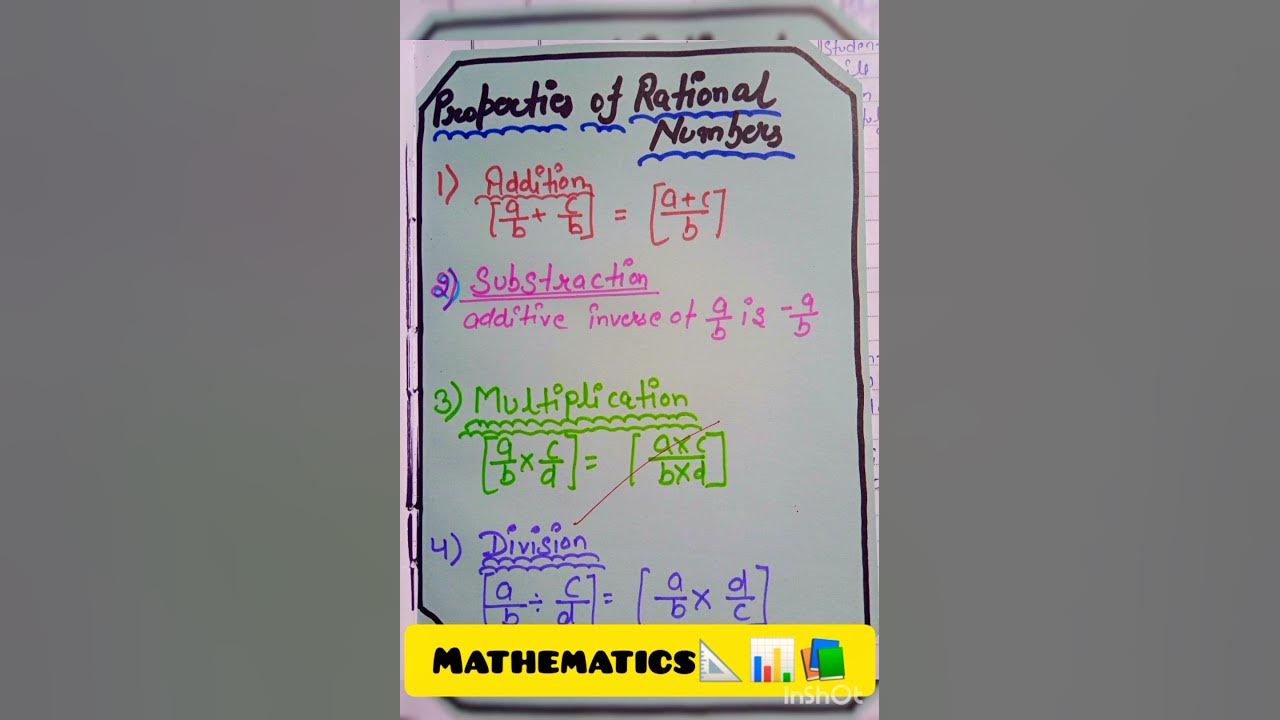 Properties of Rational
Numbers
1) Addition
[a/b + c/b] = [a+c/b]
2) Substraction
additive inverse of a/b is -a/b
3) Multiplication
[a/b × c/d] = [a×c/b×d]
4) Division
[a/b ÷ c/d] = [a/b × d/c]
MATHEMATICS📐📊📚
InShOt
Studen